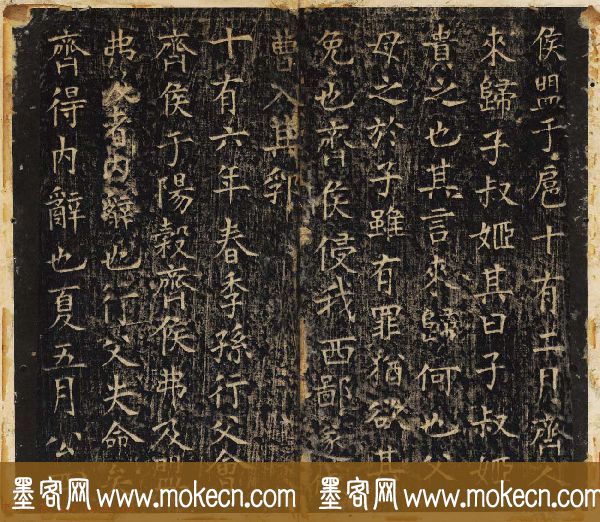 侯盟于扈十有二月齊人
來歸子叔姬其曰子叔姬
貴之也其言來歸何也父
母之於子雖有罪猶欲其
免也齊侯侵我西鄙遂
曹入其郛
十有六年春季孫行父會
齊侯于陽穀齊侯弗及盟
弗及者内辭也行父失命矣
齊得内辭也夏五月公
墨客网 www.mokecn.com 墨客网 www.mokecn.com